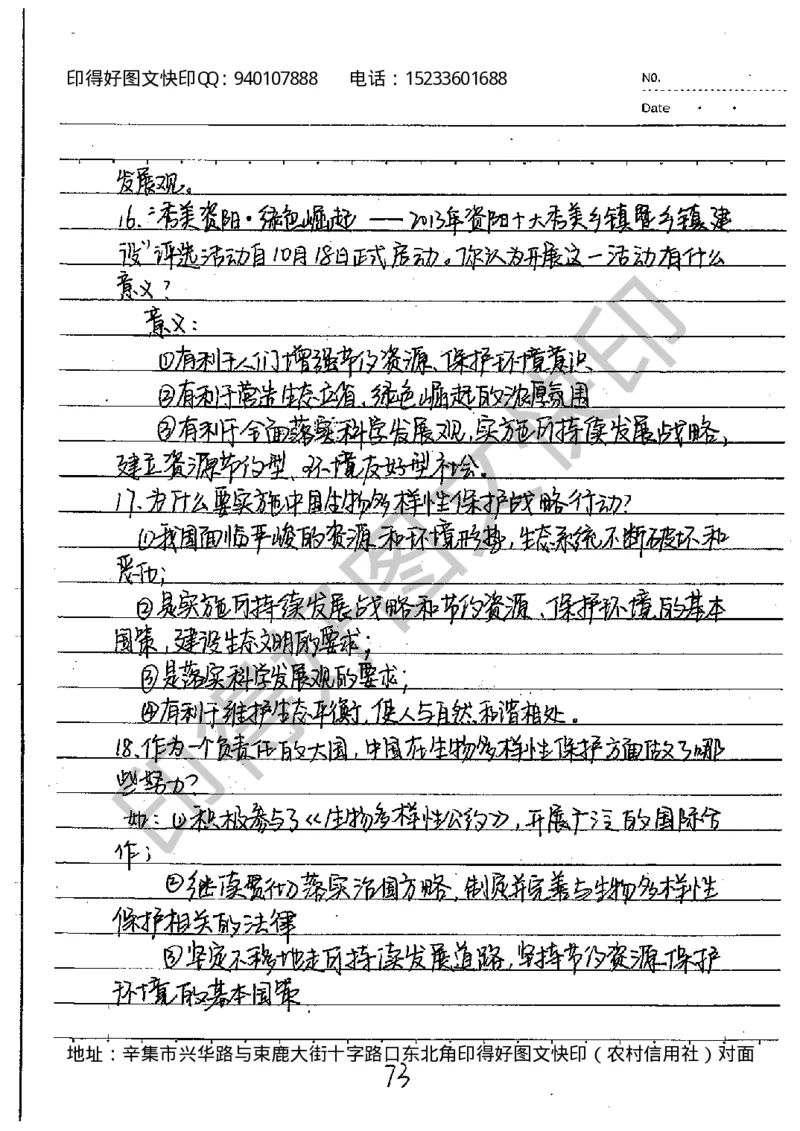 印得好图文快印QQ：940107888 电话：15233601688
No.
Date
发展观。
16.“秀美资阳·绿色崛起——2013年资阳十大秀美乡镇暨乡镇建
设”评选活动自10月18日正式启动。你认为开展这一活动有什么
意义？
意义：
①有利于人们增强节约资源、保护环境意识
②有利于营造生态立省、绿色崛起的浓厚氛围
③有利于全面落实科学发展观，实施可持续发展战略，
建立资源节约型、环境友好型社会。
17.为什么要实施中国生物多样性保护战略行动？
①我国面临严峻的资源和环境形势，生态系统不断破坏和
恶化；
②是实施可持续发展战略和节约资源、保护环境的基本
国策，建设生态文明的要求；
③是落实科学发展观的要求；
④有利于维护生态平衡，使人与自然和谐相处。
18.作为一个负责任的大国，中国在生物多样性保护方面做了哪
些努力？
如：①积极参与了《生物多样性公约》，开展广泛的国际合
作；
②继续贯彻落实治国方略，制定并完善与生物多样性
保护相关的法律
③坚定不移地走可持续发展道路，坚持节约资源、保护
环境的基本国策
地址：辛集市兴华路与束鹿大街十字路口东北角印得好图文快印（农村信用社）对面
73
印得好图文快印